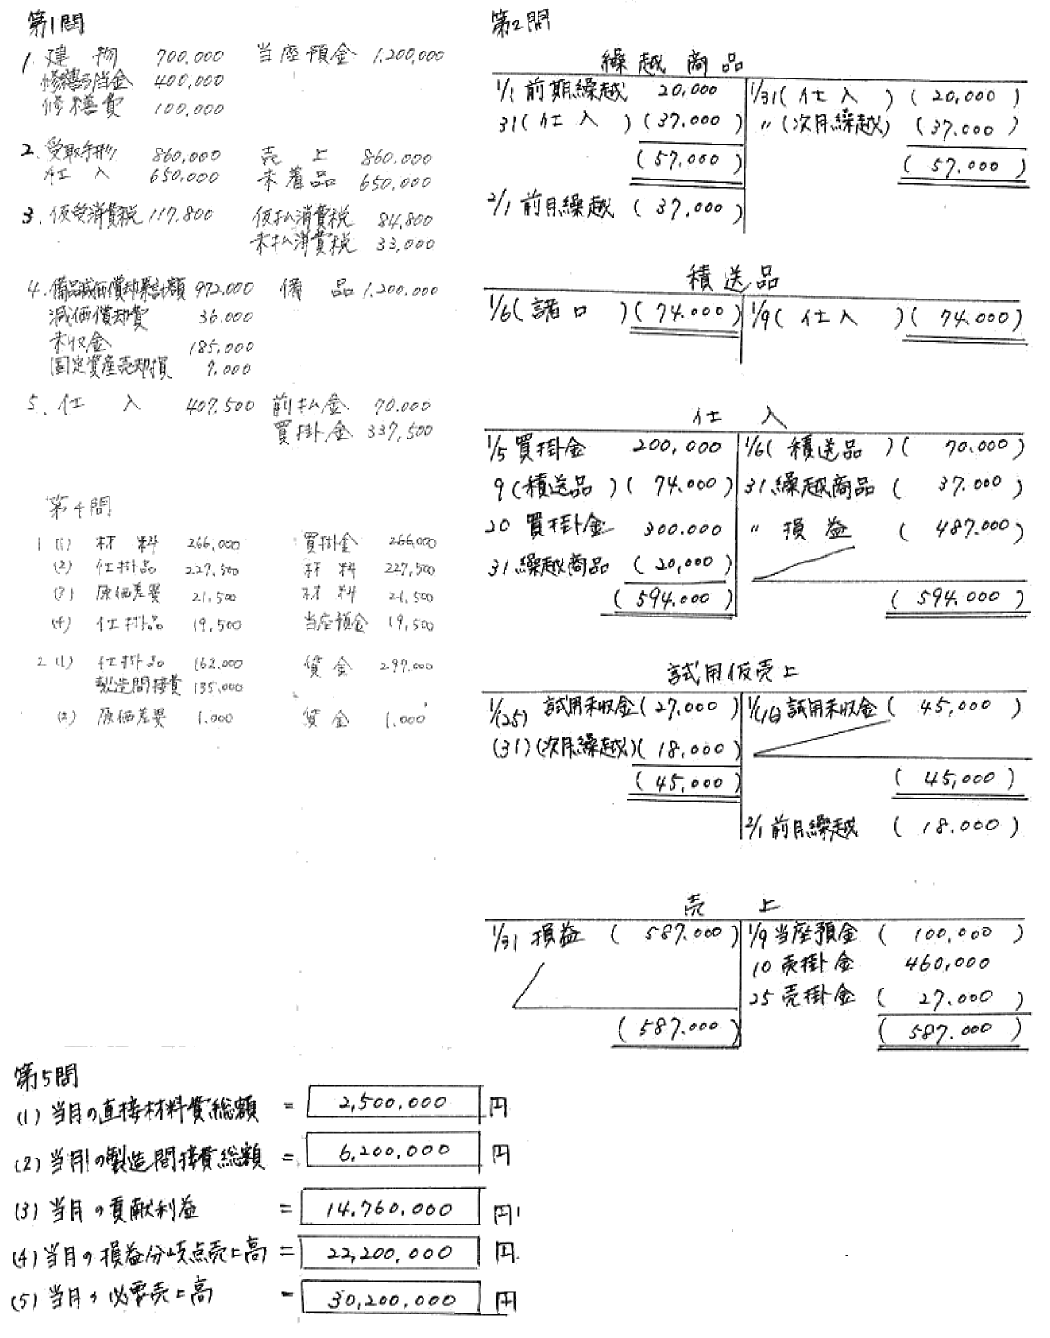 第1問
1. 建物 700,000 当座預金 1,200,000
修繕引当金 400,000
修繕費 100,000
2. 受取手形 860,000 売上 860,000
仕入 650,000 未着品 650,000
3. 仮受消費税 117,800 仮払消費税 84,800
未払消費税 33,000
4. 備品減価償却累計額 972,000 備品 1,200,000
減価償却費 36,000
未収金 185,000
固定資産売却損 7,000
5. 仕入 407,500 前払金 70,000
買掛金 337,500
第4問
1 (1) 材料 266,000 買掛金 266,000
(2) 仕掛品 227,500 材料 227,500
(3) 原価差異 21,500 材料 21,500
(4) 仕掛品 19,500 当座預金 19,500
2 (1) 仕掛品 162,000 賃金 297,000
製造間接費 135,000
(2) 原価差異 1,000 賃金 1,000
第2問
繰越商品
1/1 前期繰越 20,000 1/31 (仕入) (20,000)
31 (仕入) (37,000) 〃 (次月繰越) (37,000)
(57,000) (57,000)
2/1 前月繰越 (37,000)
積送品
1/6 (諸口) (74,000) 1/9 (仕入) (74,000)
仕入
1/5 買掛金 200,000 1/6 (積送品) (70,000)
9 (積送品) (74,000) 31 繰越商品 (37,000)
20 買掛金 300,000 〃 損益 (487,000)
31 繰越商品 (20,000)
(594,000) (594,000)
試用仮売上
1/(25) 試用未収金 (27,000) 1/(16) 試用未収金 (45,000)
(31) (次月繰越) (18,000)
(45,000) (45,000)
2/1 前月繰越 (18,000)
売上
1/31 損益 (587,000) 1/9 当座預金 (100,000)
10 売掛金 460,000
25 売掛金 (27,000)
(587,000) (587,000)
第5問
(1) 当月の直接材料費総額 = 2,500,000 円
(2) 当月の製造間接費総額 = 6,200,000 円
(3) 当月の貢献利益 = 14,760,000 円
(4) 当月の損益分岐点売上高 = 22,200,000 円
(5) 当月の必要売上高 = 30,200,000 円